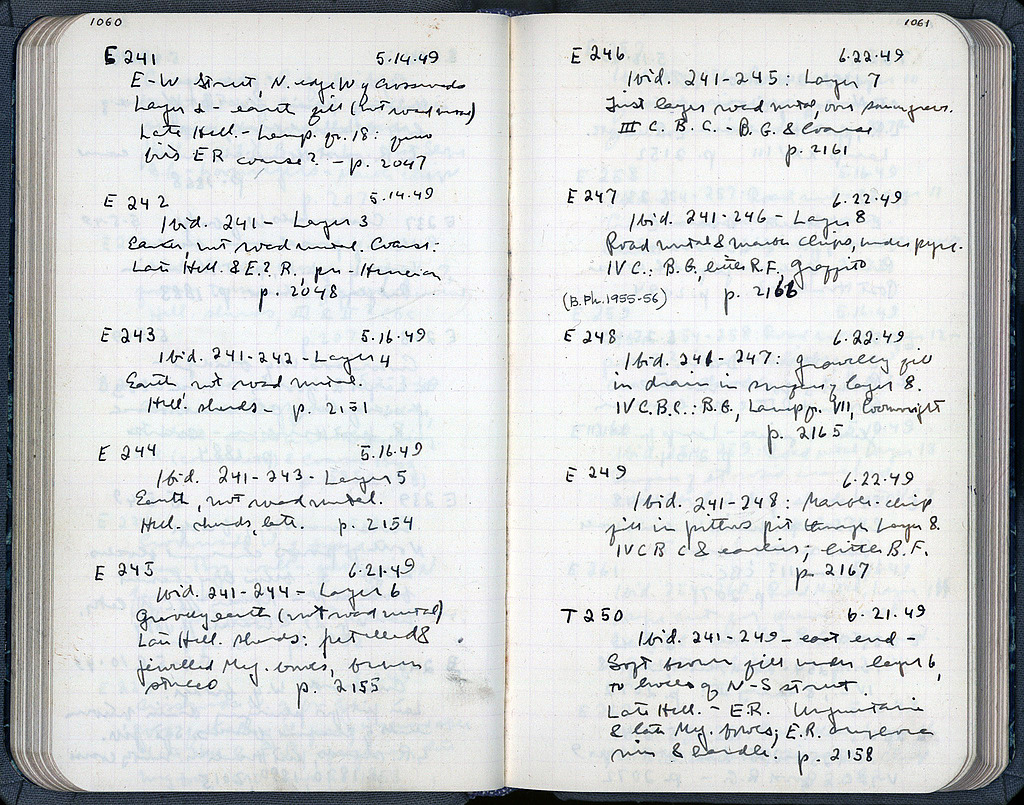 1060
E 241 5.14.49
E-W Street, N. edge W of Crossroads
Layer 2 - earth fill (not road metal)
Late Hell. - Lamp. gr. 18:
bits E R coarse? - p. 2047
E 242 5.14.49
Ibid. 241 - Layer 3
Earth, not road metal. Coarse:
Late Hell. & E.? R.,
p. 2048
E 243 5.16.49
Ibid. 241-242 - Layer 4
Earth, not road metal.
Hell. sherds - p. 2151
E 244 5.16.49
Ibid. 241-243 - Layer 5
Earth, not road metal.
Hell. sherds, late. p. 2154
E 245 6.21.49
Ibid. 241-244 - Layer 6
Gravelly earth (not road metal)
Late Hell. sherds:
Meg. bowls, brown
stucco p. 2155
1061
E 246 6.22.49
Ibid. 241-245: Layer 7
First layer road metal, over
III C. B.C. - B.G. & Coarse
p. 2161
E 247 6.22.49
Ibid. 241-246 - Layer 8
Road metal & marble chips, under
IV C.: B.G. little R.F., graffito
(B.Ph. 1955-56) p. 2166
E 248 6.22.49
Ibid. 241-247: Gravelly fill
in drain in layer 8.
IV C. B.C.: B.G., Lamp gr. VII, loomweight
p. 2165
E 249 6.22.49
Ibid. 241-248: Marble-chip
fill in pit through Layer 8.
IV C B C & earlier; little B.F.
p. 2167
T 250 6.21.49
Ibid. 241-249 - east end -
Soft brown fill under layer 6,
to levels of N-S street
Late Hell. - E.R. Unguentaria
& late Meg. bowls; E.R.
rim & handle. p. 2158